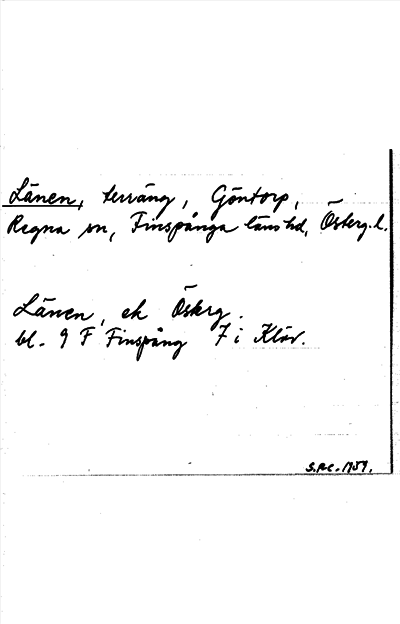 Länen, terräng, Göntorp,
Regna sn, Finspånga läns hd, Österg. l.
Länen, ek Österg.
bl. 9 F Finspång 7 i Klöv.
1959.